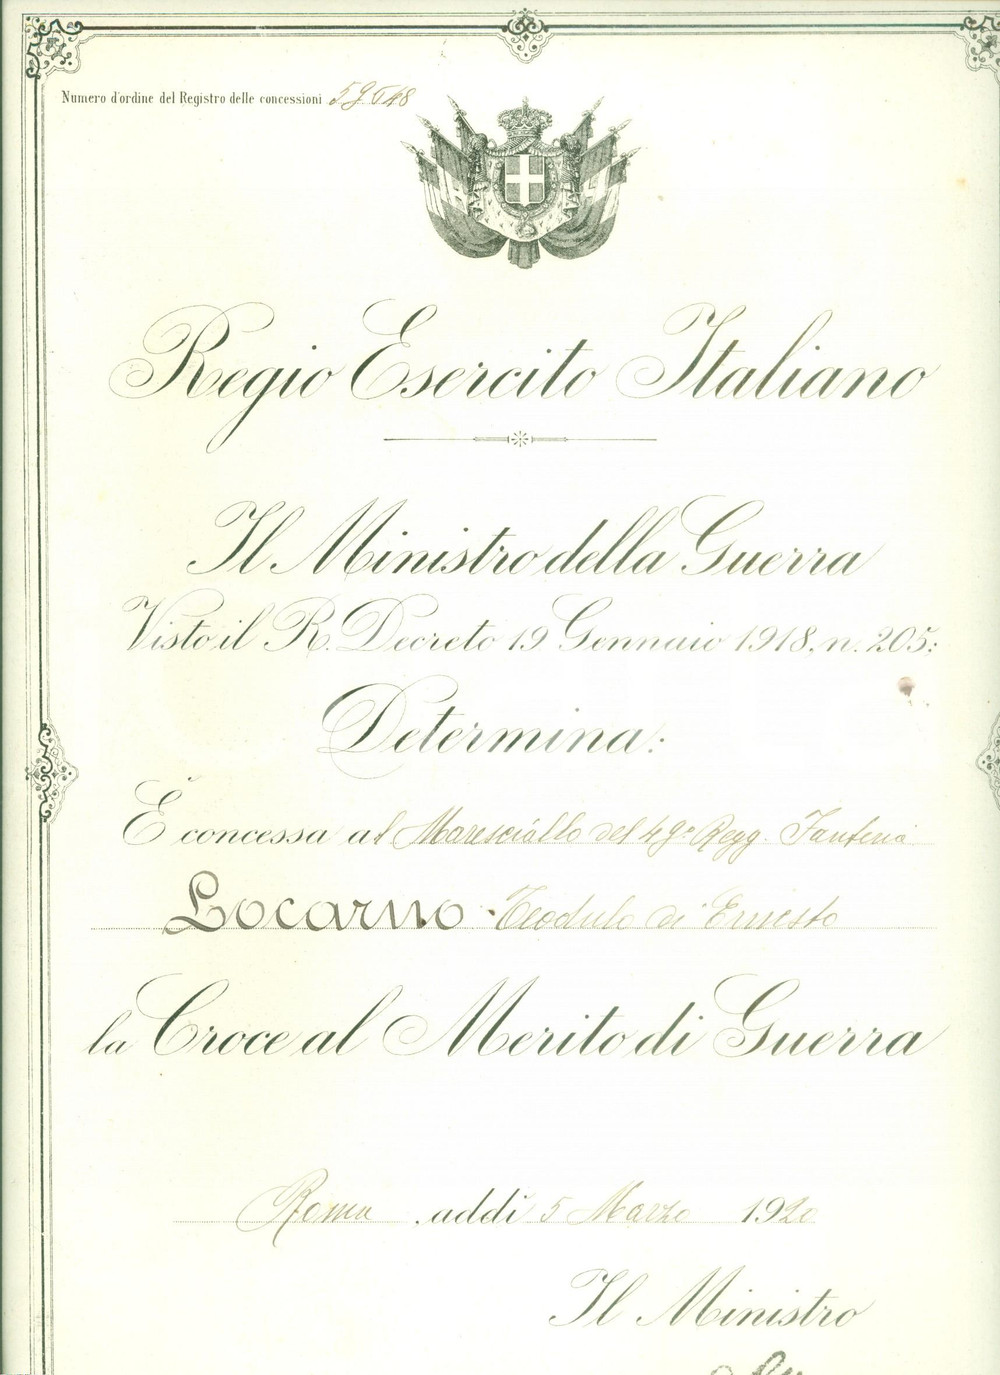 Numero d'ordine del Registro delle concessioni
Regio Esercito Italiano
Il Ministro della Guerra
Visto il R. Decreto 19 Gennaio 1918, n. 205;
Determina:
È concessa al Maresciallo del 49° Regg. Fanteria
Locarno Teodulo di Ernesto
la Croce al Merito di Guerra
Roma, addì 5 Marzo 1920
Il Ministro